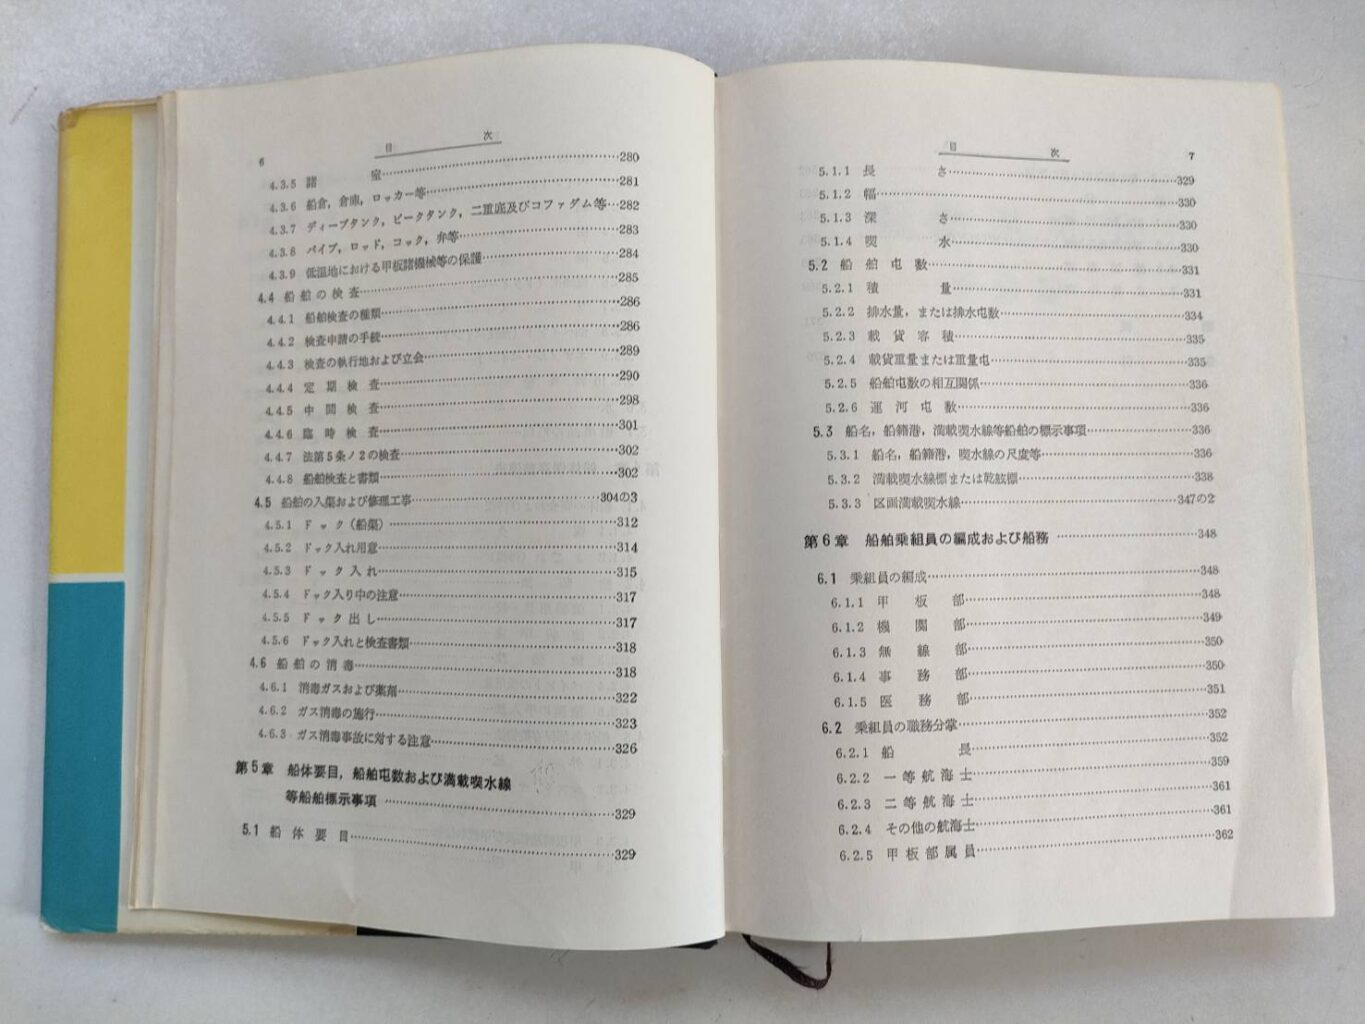 6 目次
4.3.5 諸室……280
4.3.6 船倉，倉庫，ロッカー等……281
4.3.7 ディープタンク，ピークタンク，二重底及びコファダム等…282
4.3.8 パイプ，ロッド，コック，弁等……283
4.3.9 低温地における甲板諸機械等の保護……284
4.4 船舶の検査……285
4.4.1 船舶検査の種類……286
4.4.2 検査申請の手続……286
4.4.3 検査の執行地および立会……289
4.4.4 定期検査……290
4.4.5 中間検査……298
4.4.6 臨時検査……301
4.4.7 法第5条ノ2の検査……302
4.4.8 船舶検査と書類……302
4.5 船舶の入渠および修理工事……304の3
4.5.1 ドック（船渠）……312
4.5.2 ドック入れ用意……314
4.5.3 ドック入れ……315
4.5.4 ドック入り中の注意……317
4.5.5 ドック出し……317
4.5.6 ドック入れと検査書類……318
4.6 船舶の消毒……318
4.6.1 消毒ガスおよび薬剤……322
4.6.2 ガス消毒の施行……323
4.6.3 ガス消毒事故に対する注意……326
第5章 船体要目，船舶屯数および満載喫水線
等船舶標示事項……329
5.1 船体要目……329
目次 7
5.1.1 長さ……329
5.1.2 幅……330
5.1.3 深さ……330
5.1.4 喫水……330
5.2 船舶屯数……331
5.2.1 積量……331
5.2.2 排水量，または排水屯数……334
5.2.3 載貨容積……335
5.2.4 載貨重量または重量屯……335
5.2.5 船舶屯数の相互関係……336
5.2.6 運河屯数……336
5.3 船名，船籍港，満載喫水線等船舶の標示事項……336
5.3.1 船名，船籍港，喫水線の尺度等……336
5.3.2 満載喫水線標または乾舷標……338
5.3.3 区画満載喫水線……347の2
第6章 船舶乗組員の編成および船務……348
6.1 乗組員の編成……348
6.1.1 甲板部……348
6.1.2 機関部……349
6.1.3 無線部……350
6.1.4 事務部……350
6.1.5 医務部……351
6.2 乗組員の職務分掌……352
6.2.1 船長……352
6.2.2 一等航海士……359
6.2.3 二等航海士……361
6.2.4 その他の航海士……361
6.2.5 甲板部属員……362